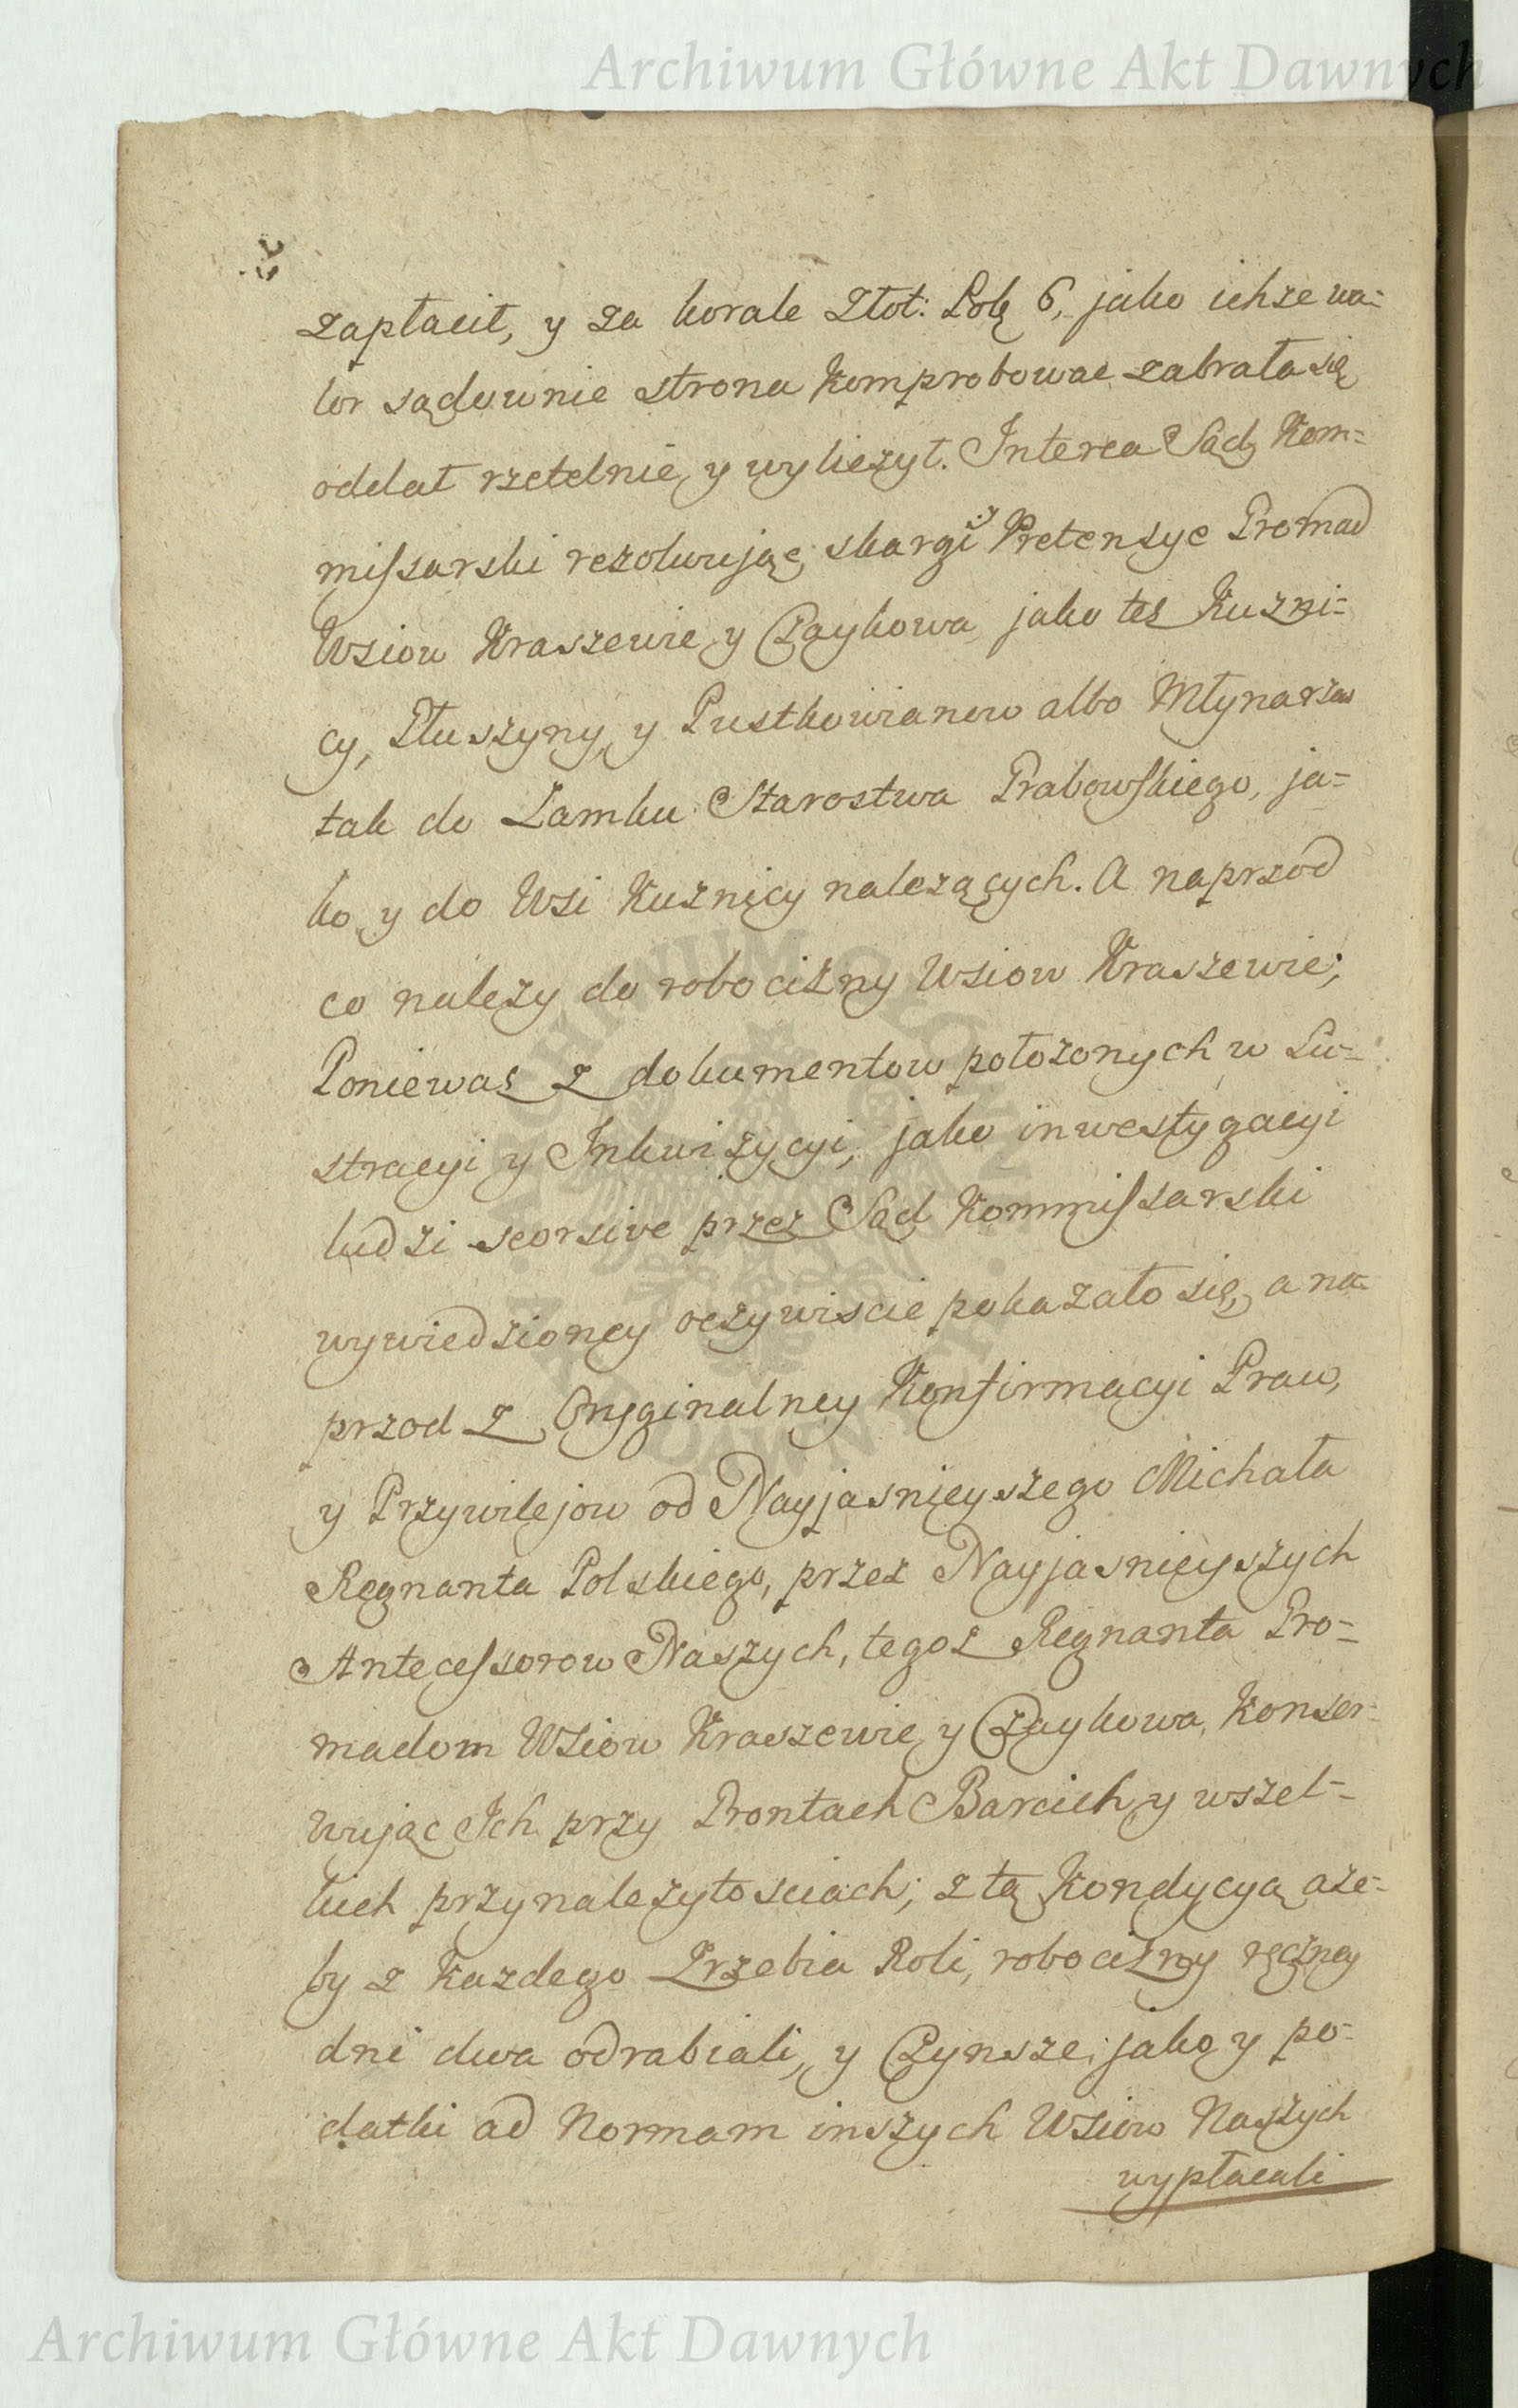 Archiwum Główne Akt Dawnych
zapłacił, y za korale Złot: Pols 6, jako ichże wa-
lor sądownie strona komprobować zabrała się
oddał rzetelnie, y wyliczył. Interea Sąd Kom=
missarski rezolwując skargi y Pretensye Gromad
Wsiow Kraszewie y Czaykowa jako też Kuzni-
cy, Głuszyny, y Pustkowianow albo Młynarzow
tak do Zamku Starostwa Grabowskiego, ja-
ko y do Wsi Kuznicy należących. A naprzod
co należy do robocizny Wsiow Kraszewie;
Poniewaz z dokumentow położonych w Lu-
stracyi y Inkwizycyi, jako inwestygacyi
ludzi seorsive przez Sąd Kommissarski
wywiedzioney oczywiscie pokazało się, a na-
przod z Oryginalney Konfirmacyi Praw,
y Przywilejow od Nayjasnieyszego Michała
Regnanta Polskiego, przez Nayjasnieyszych
Antecessorow Naszych, tegoż Regnanta Gro-
madom Wsiow Kraszewie y Czaykowa, konser-
wując Ich przy Grontach Barciech y wszel-
kich przynależytosciach; z tą Kondycyą aże-
by z każdego Grzebia Roli, robocizny ręczney
dni dwa odrabiali, y Czynsze, jako y po-
datki ad Normam inszych Wsiow Naszych
wypłacali
Archiwum Główne Akt Dawnych